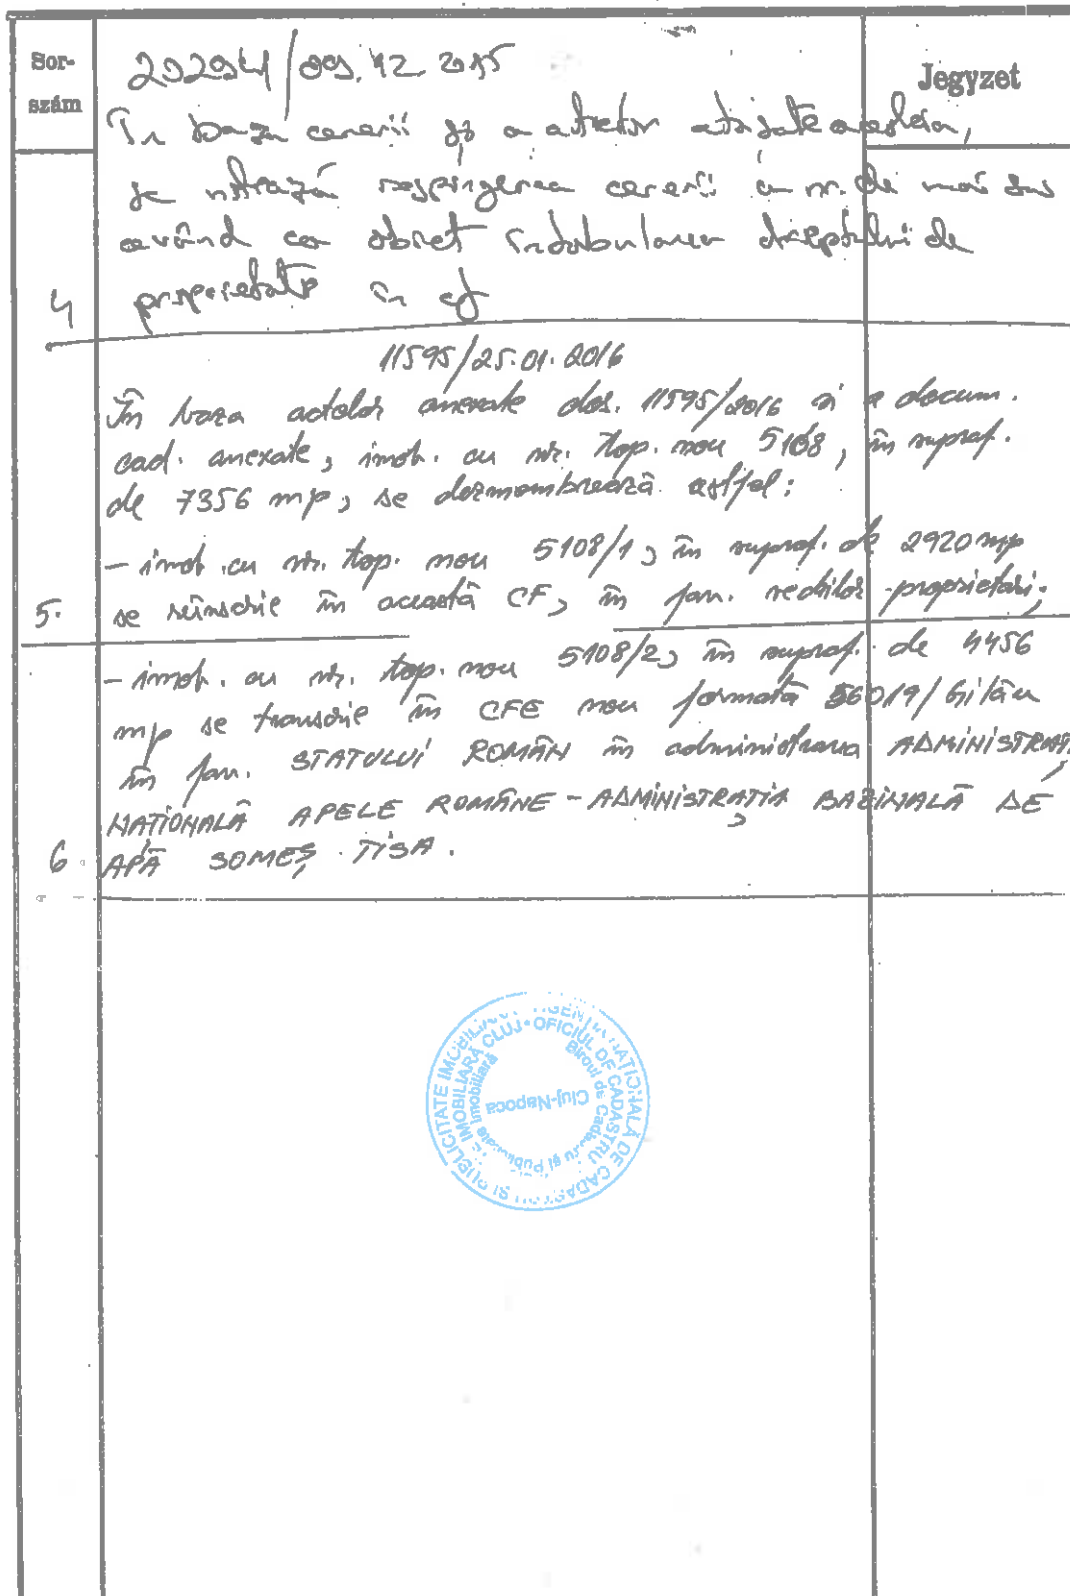 Sor-
szám
Jegyzet
202941/09.12.2015
În baza cererii și a actelor atașate acesteia,
se notează respingerea cererii cu nr. de mai sus
având ca obiect intabularea dreptului de
4 proprietate în cf
11595/25.01.2016
În baza actelor anexate dos. 11595/2016 si a docum.
cad. anexate, imob. cu nr. top. nou 5108, în supraf.
de 7356 mp, se dezmembrează astfel:
- imob. cu nr. top. nou 5108/1, în supraf. de 2920 mp
5. se reînscrie în această CF, în fav. vechilor proprietari;
- imob. cu nr. top. nou 5108/2, în supraf. de 4456
mp se transcrie în CFE nou formată 56019/Gilău
în fav. STATULUI ROMÂN în administrarea
NAȚIONALĂ APELE ROMÂNE - ADMINISTRAȚIA BAZINALĂ DE
6. APĂ SOMEȘ TISA.
AGENȚIA NAȚIONALĂ DE CADASTRU ȘI PUBLICITATE IMOBILIARĂ
OFICIUL DE CADASTRU IMOBILIARĂ CLUJ
Biroul de Cadastru și Publicitate Imobiliară
Cluj-Napoca